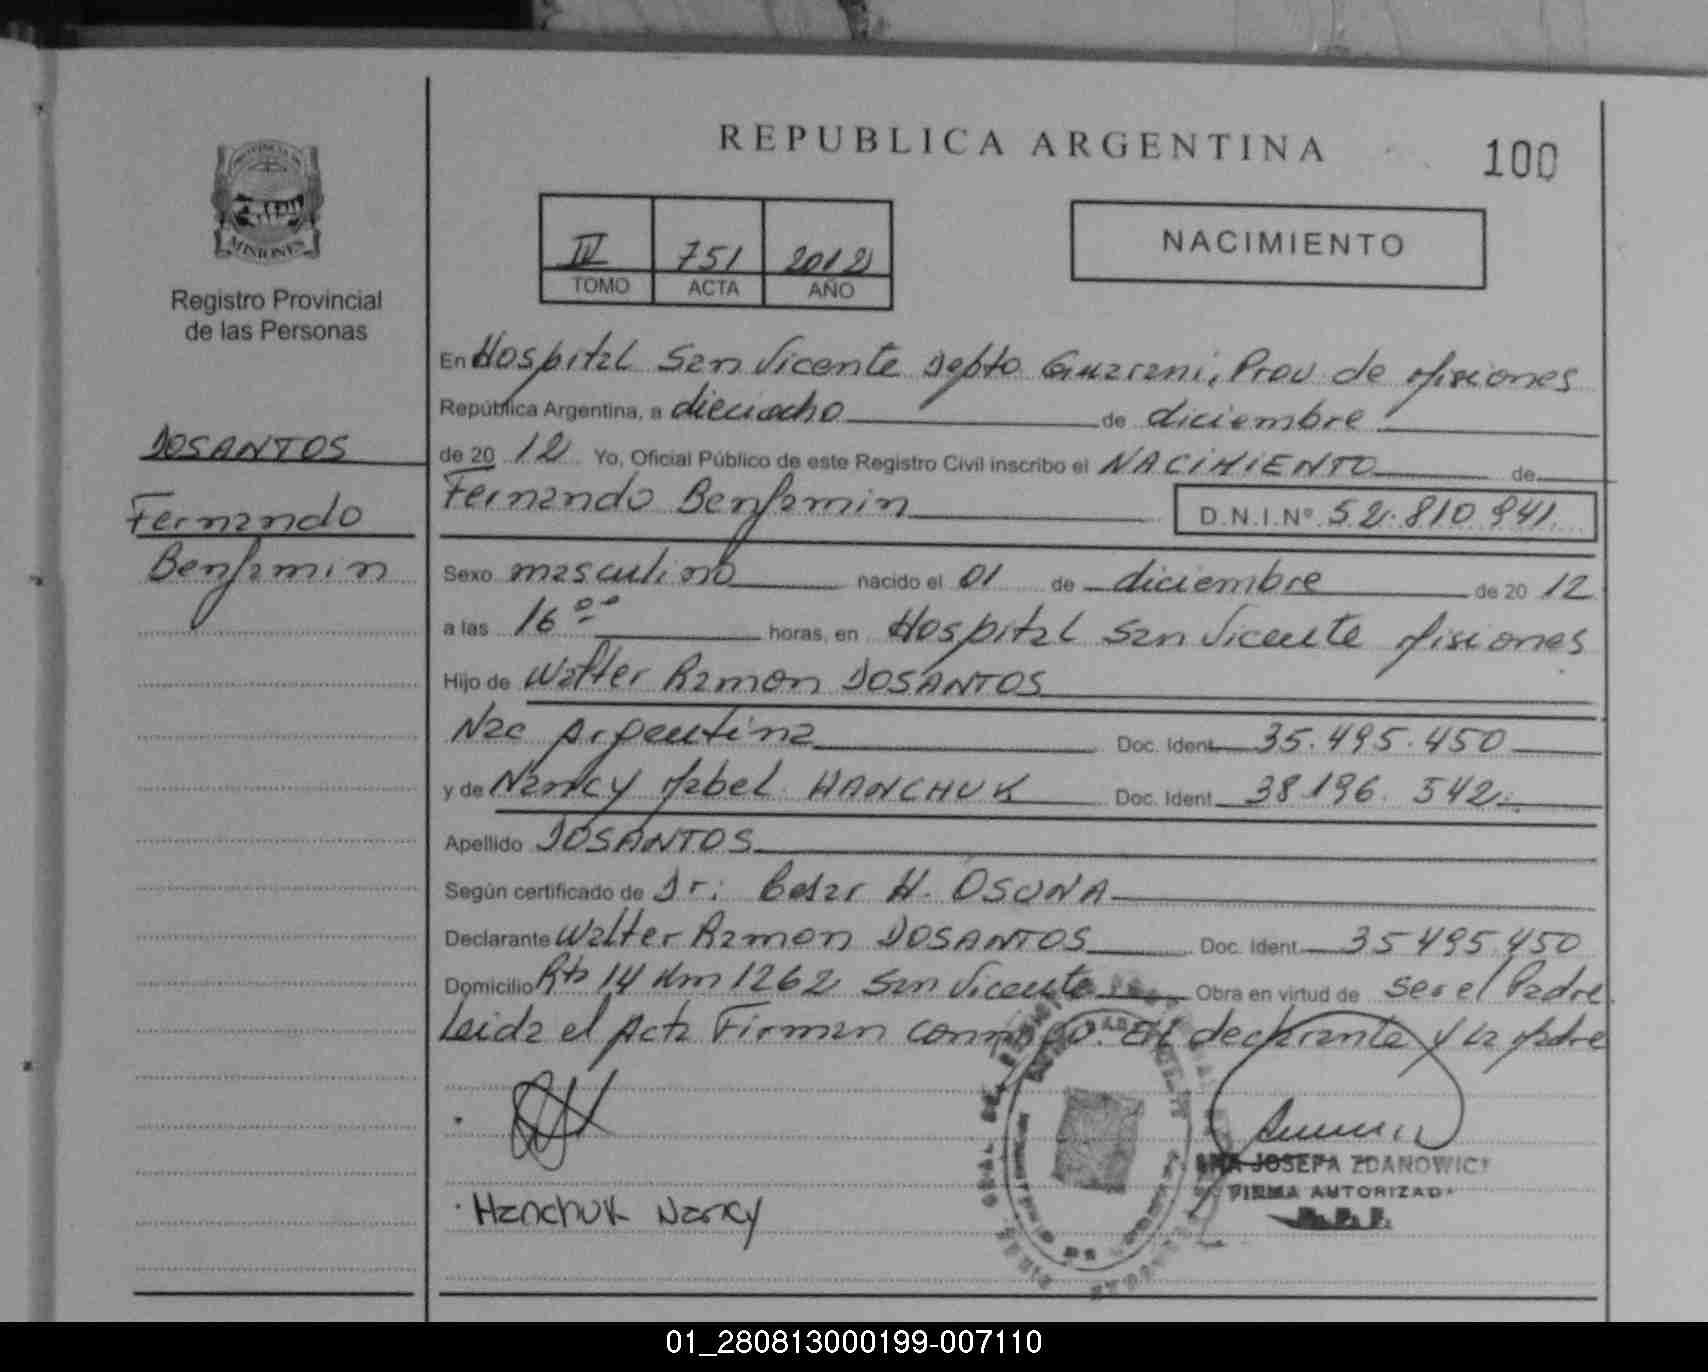 REPUBLICA ARGENTINA
100
PROVINCIA DE
MISIONES
Registro Provincial
de las Personas
IV 751 2012
TOMO ACTA AÑO
NACIMIENTO
DOSANTOS
Fernando
Benjamin
En Hospital San Vicente Depto Guarani, Prov de Misiones
República Argentina, a dieciocho de diciembre
de 20 12 Yo, Oficial Público de este Registro Civil inscribo el NACIMIENTO de
Fernando Benjamin D.N.I.Nº 52.810.941
Sexo masculino nacido el 01 de diciembre de 20 12
a las 16 ºº horas, en Hospital San Vicente Misiones
Hijo de Walter Ramon DOSANTOS
Nac Argentina Doc. Ident. 35.495.450
y de Nancy Mabel HANCHUK Doc. Ident. 38.196.542
Apellido DOSANTOS
Según certificado de Dr: Cesar H. OSUNA
Declarante Walter Ramon DOSANTOS Doc. Ident. 35.495.450
Domicilio Rta 14 Km 1262 San Vicente Obra en virtud de ser el Padre
Leida el Acta Firman conmigo. El declarante y la Madre
JOSEFA ZDANOWICZ
FIRMA AUTORIZADA
Hanchuk Nancy
01_280813000199-007110